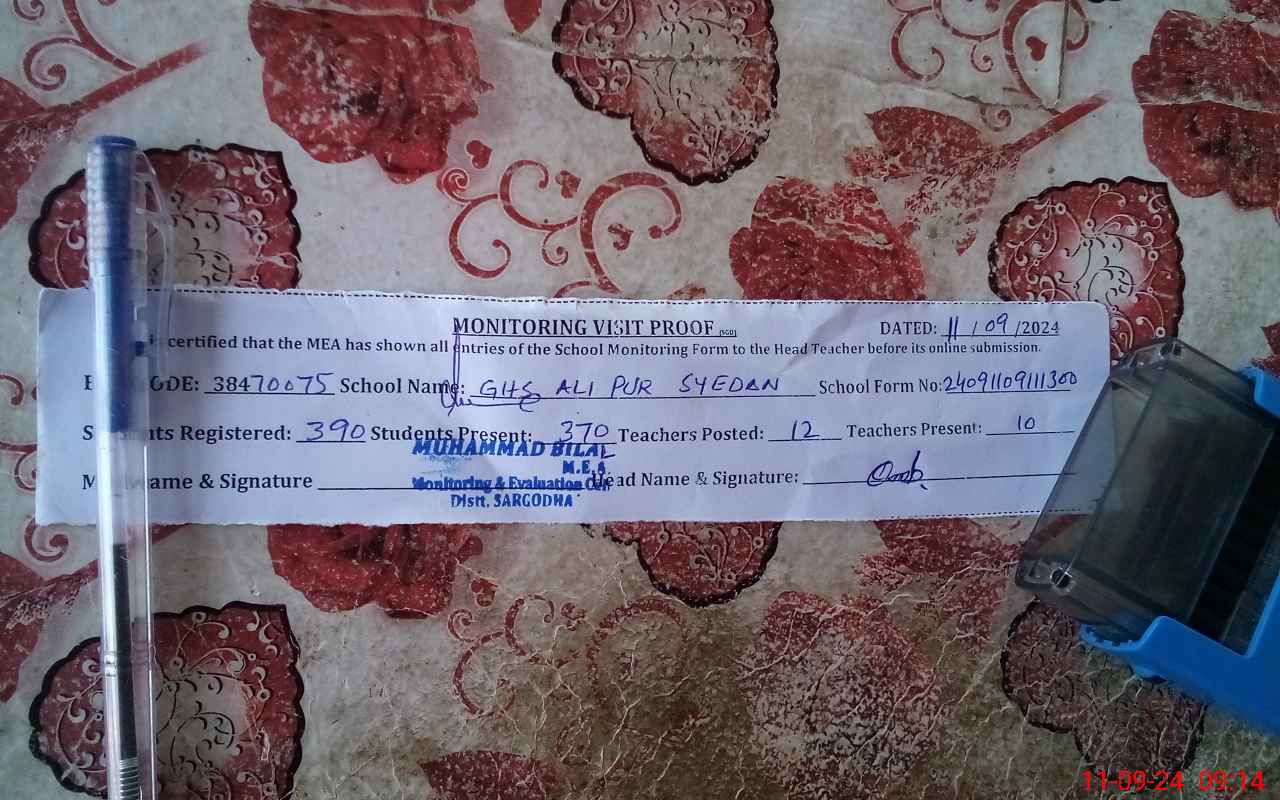 MONITORING VISIT PROOF (SGD) DATED: 11/09/2024
certified that the MEA has shown all entries of the School Monitoring Form to the Head Teacher before its online submission.
ODE: 38470075 School Name: GHS ALI PUR SYEDAN School Form No: 24091109111300
nts Registered: 390 Students Present: 370 Teachers Posted: 12 Teachers Present: 10
ame & Signature Head Name & Signature:
MUHAMMAD BILAL
M.E.A
Monitoring & Evaluation Cell
Distt. SARGODHA
11-09-24 09:14